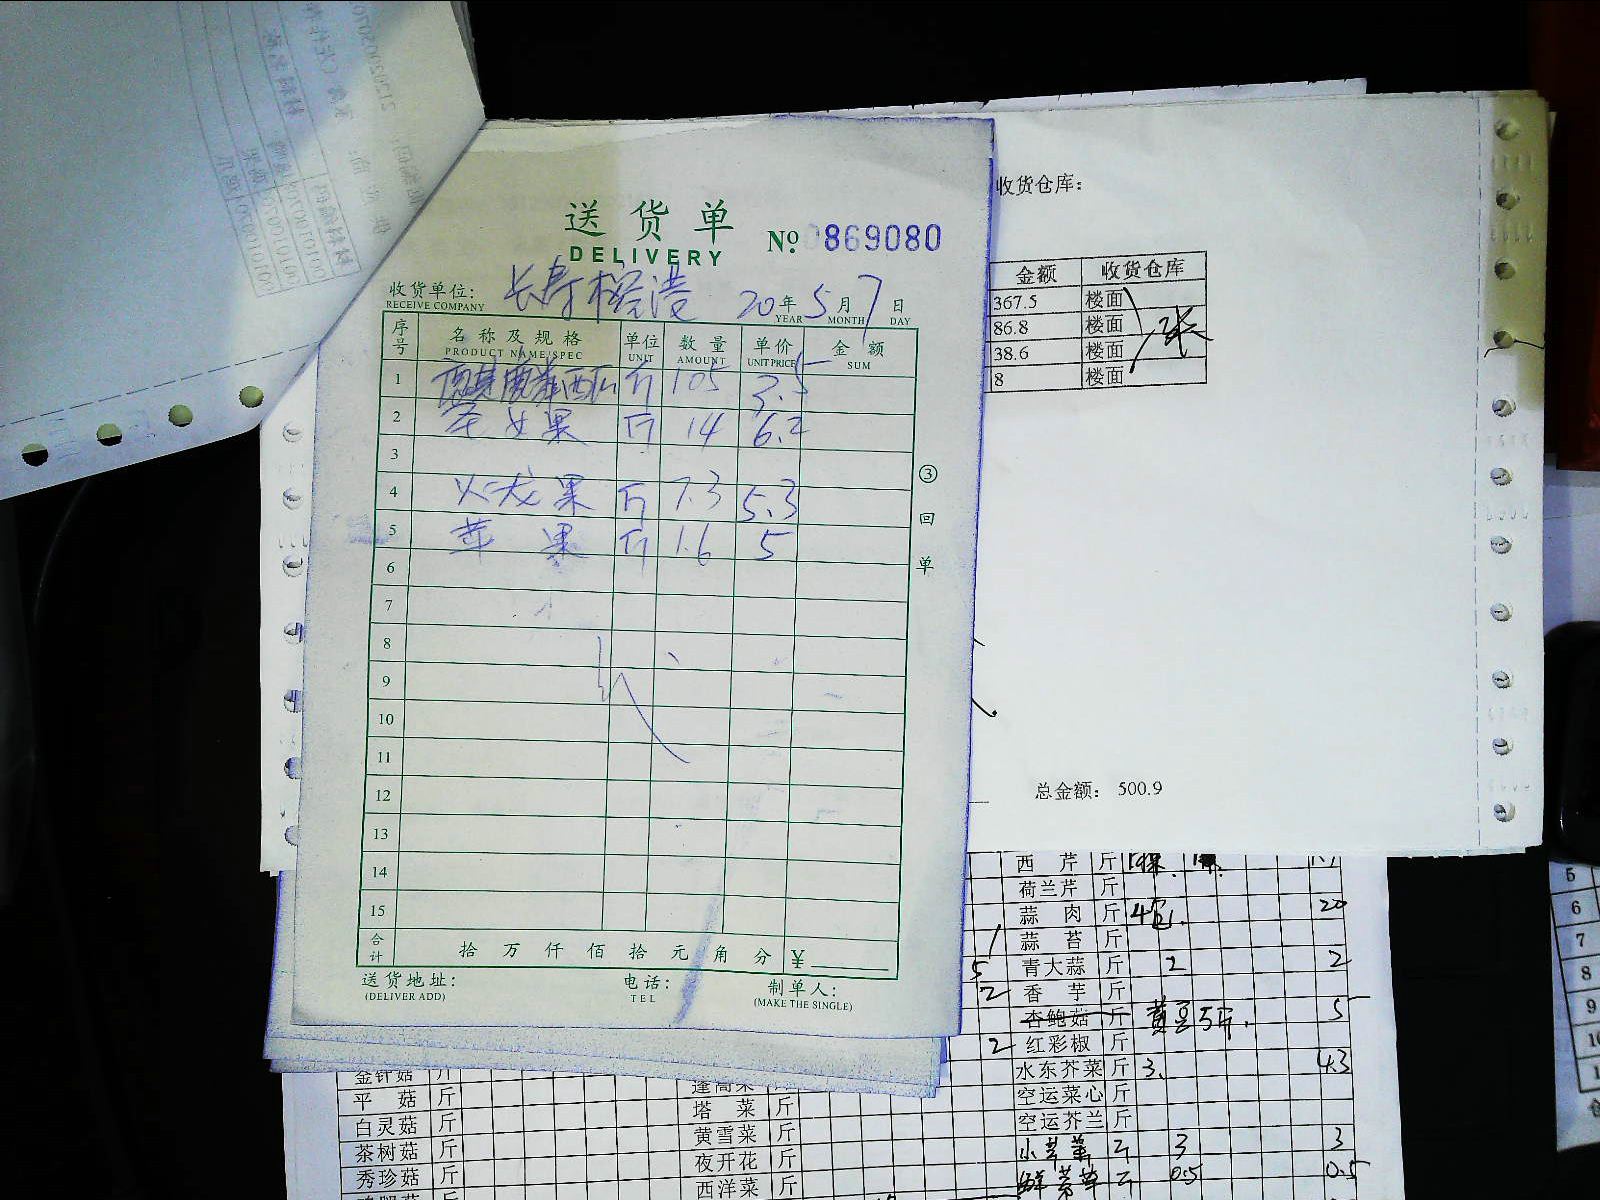 送货单
DELIVERY
Nº 0869080
收货单位: 长寿榕港 20年5月7日
RECEIVE COMPANY YEAR MONTH DAY
序号 名称及规格 单位 数量 单价 金额
PRODUCT NAME/SPEC UNIT AMOUNT UNIT PRICE SUM
1 麒麟西瓜 斤 105 3.5
2 圣女果 斤 14 6.2
3
4 火龙果 斤 7.3 5.3
5 苹果 斤 1.6 5
6
7
8
9
10
11
12
13
14
15
合计 拾万仟佰拾元角分 ¥
送货地址: 电话: 制单人:
(DELIVER ADD) TEL (MAKE THE SINGLE)
③回单
收货仓库:
金额 收货仓库
367.5 楼面
86.8 楼面
38.6 楼面
8 楼面
张
总金额: 500.9
西芹 斤
荷兰芹 斤
蒜肉 斤 4包 20
蒜苔 斤
青大蒜 斤 2 2
香芋 斤
杏鲍菇 斤 黄豆5斤. 5
红彩椒 斤
水东芥菜 斤 3. 4.3
空运菜心 斤
空运芥兰 斤
3 3
0.5 0.5
金针菇 斤
平菇 斤
白灵菇 斤
茶树菇 斤
秀珍菇 斤
蓬蒿菜 斤
塔菜 斤
黄雪菜 斤
夜开花 斤
西洋菜 斤
5
6
7
8
9
10